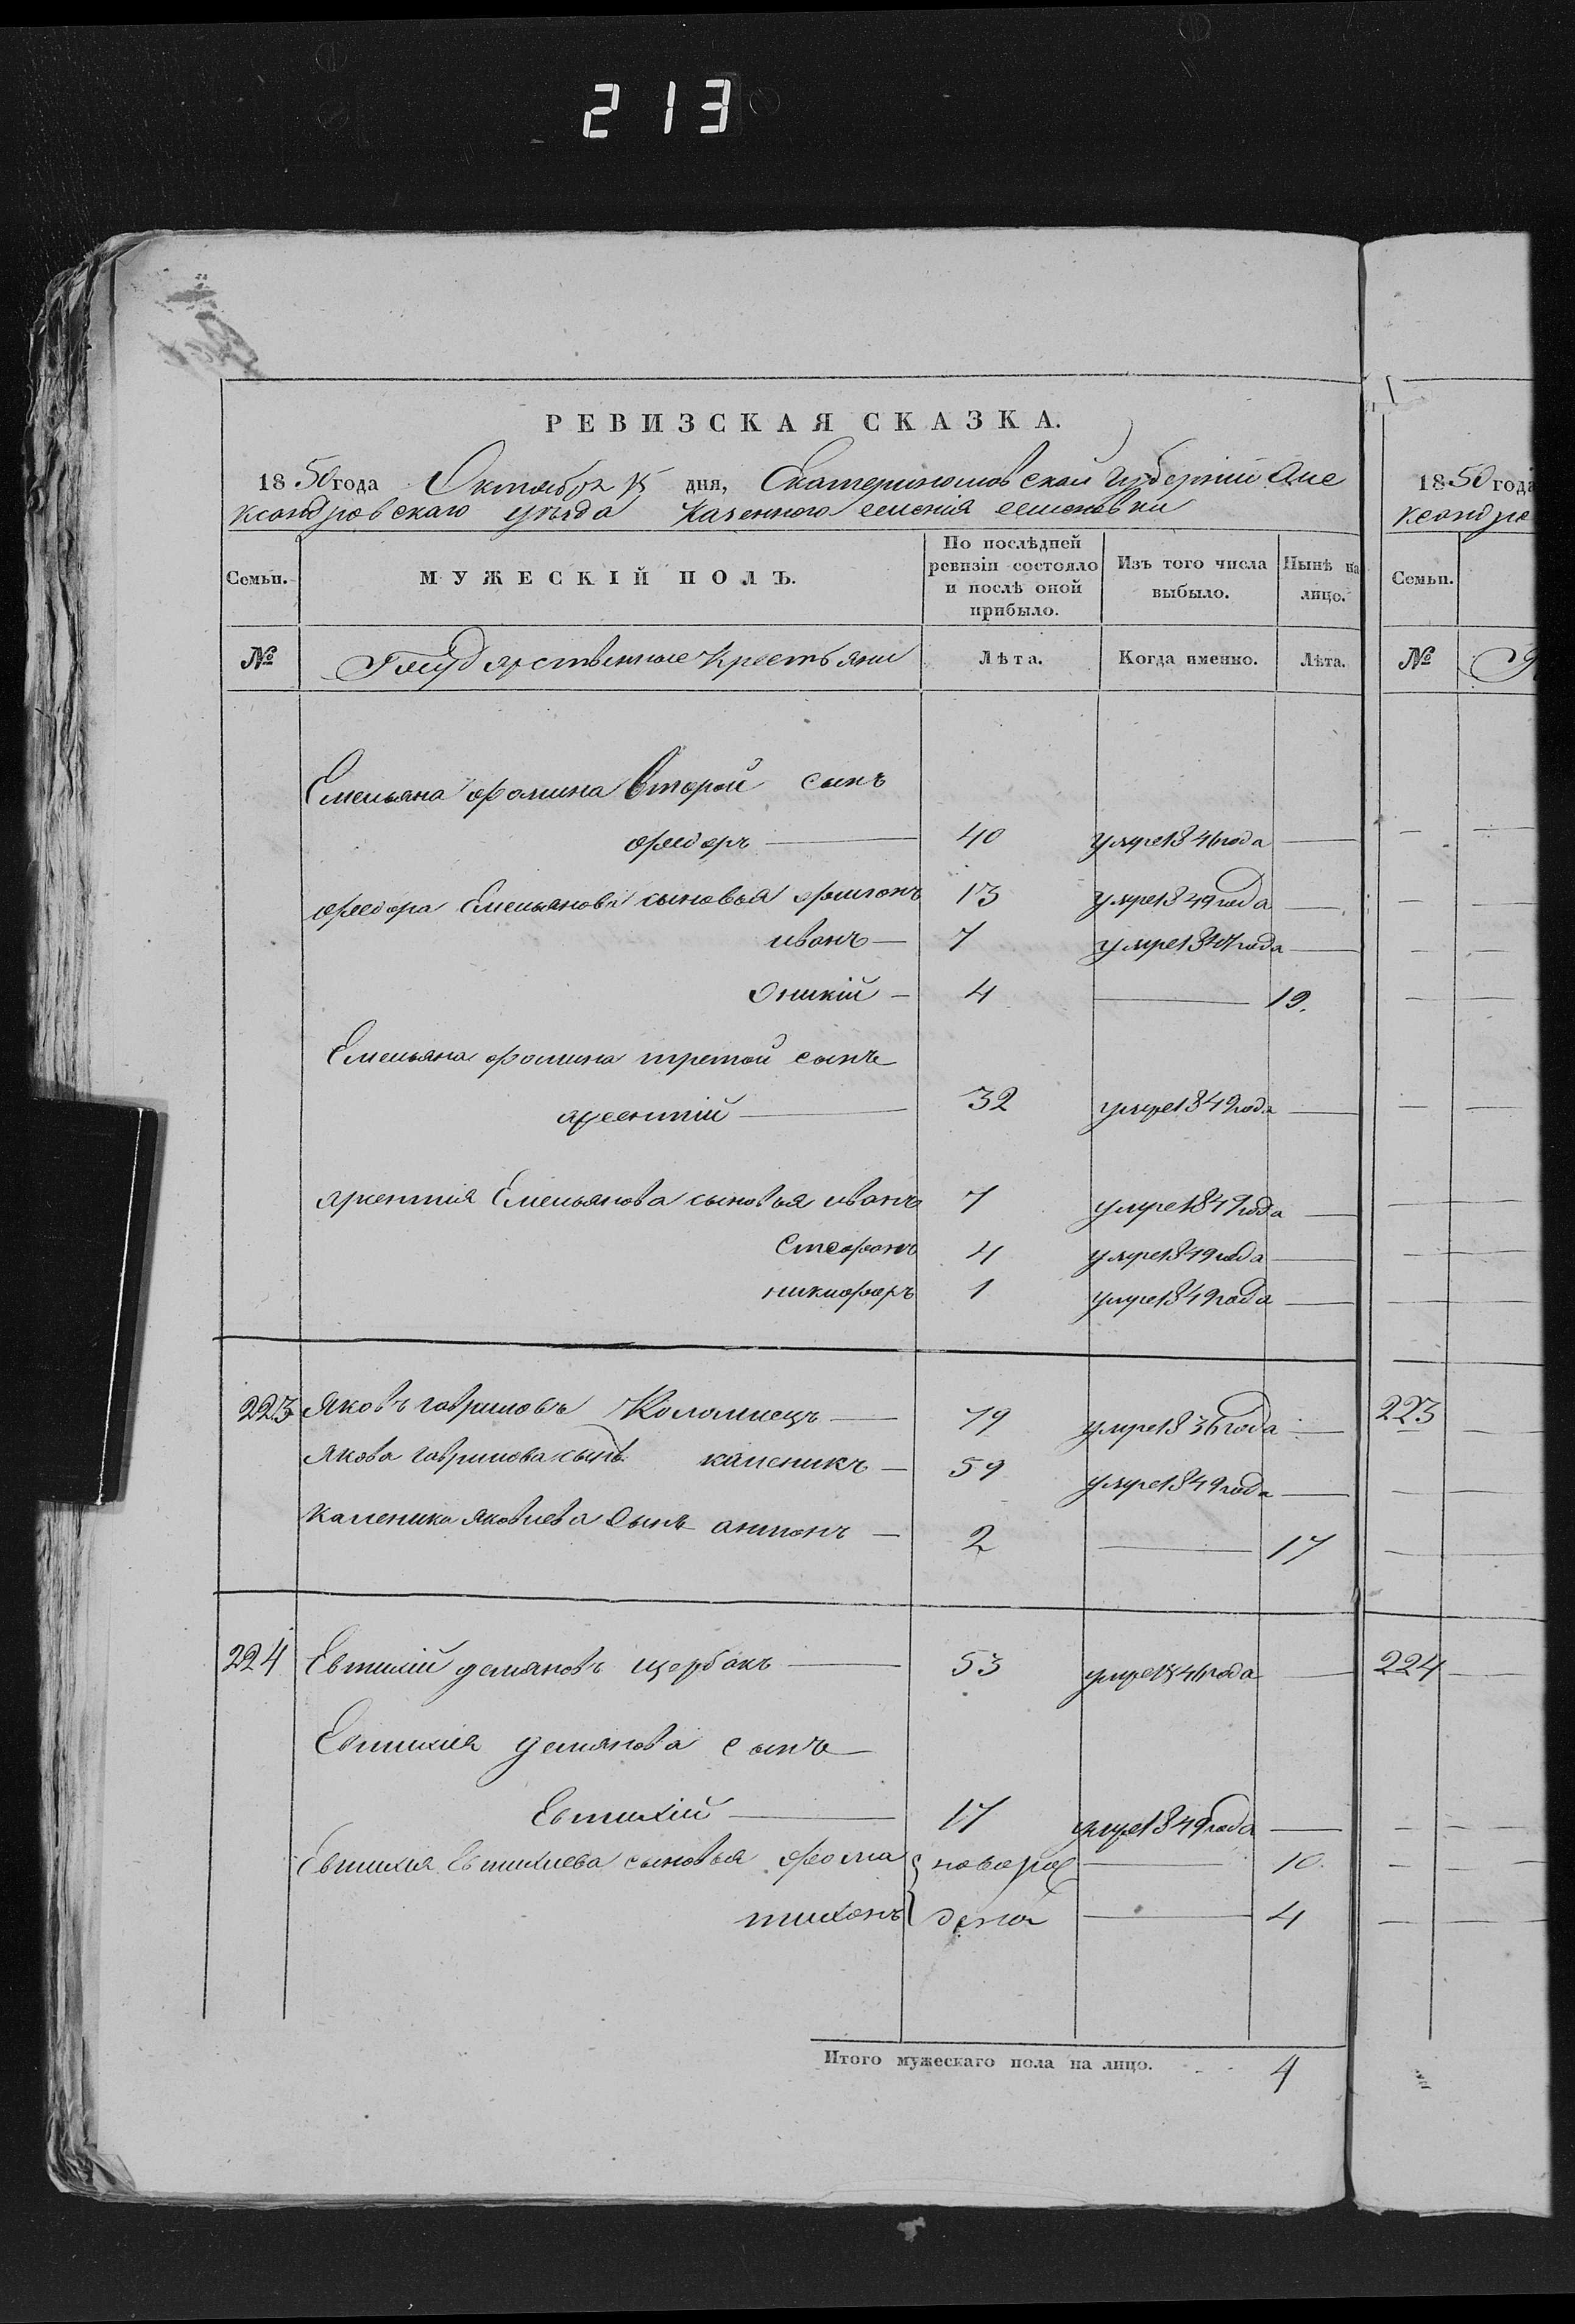 213
РЕВИЗСКАЯ СКАЗКА.
1850 года Октября 15 дня, Екатеринославской Губерніи Але
ксандровскаго уѣзда Казенного селенія семеновки
Семьи. МУЖЕСКІЙ ПОЛЪ. По послѣдней ревизіи состояло и послѣ оной прибыло. Изъ того числа выбыло. Нынѣ на лицо.
№ Государственные Крестьяни Лѣта. Когда именно. Лѣта.
Емельяна фомина второй сынъ
федоръ — 40 умре 1846 года —
федора Емельянова сыновья филионъ 13 умре 1849 года —
иванъ — 7 умре 1847 года —
Оникій — 4 — 19.
Емельяна фомина третой сынъ
арсентій — 32 умре 1849 года —
арсентия Емельянова сыновья иванъ 7 умре 1849 года —
Стефанъ 4 умре 1849 года —
никифоръ 1 умре 1849 года —
223 Яковъ гавриловъ Коломиецъ — 79 умре 1836 года —
Якова гаврилова сынъ каленикъ — 59 умре 1849 года —
каленика яковлева сынъ антонъ — 2 — 17
224 Евтихій демяновъ щербакъ — 53 умре 1846 года —
Евтихия демянова сынъ —
Евтихій — 17 умре 1849 года —
Евтихия Евтихиева сыновья фома новорож — 10.
тихонъ дены — 4
Итого мужескаго пола на лицо. 4
1850 года
ксандро
Семьи.
№
223
224